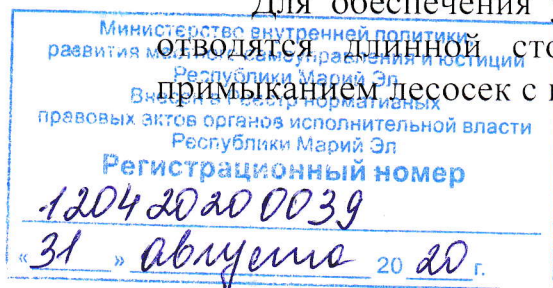 Для обеспечения
отводятся длинной сто
примыканием лесосек с
Министерство внутренней политики,
развития местного самоуправления и юстиции
Республики Марий Эл
Внесен в реестр нормативных
правовых актов органов исполнительной власти
Республики Марий Эл
Регистрационный номер
120420200039
«31» августа 2020 г.